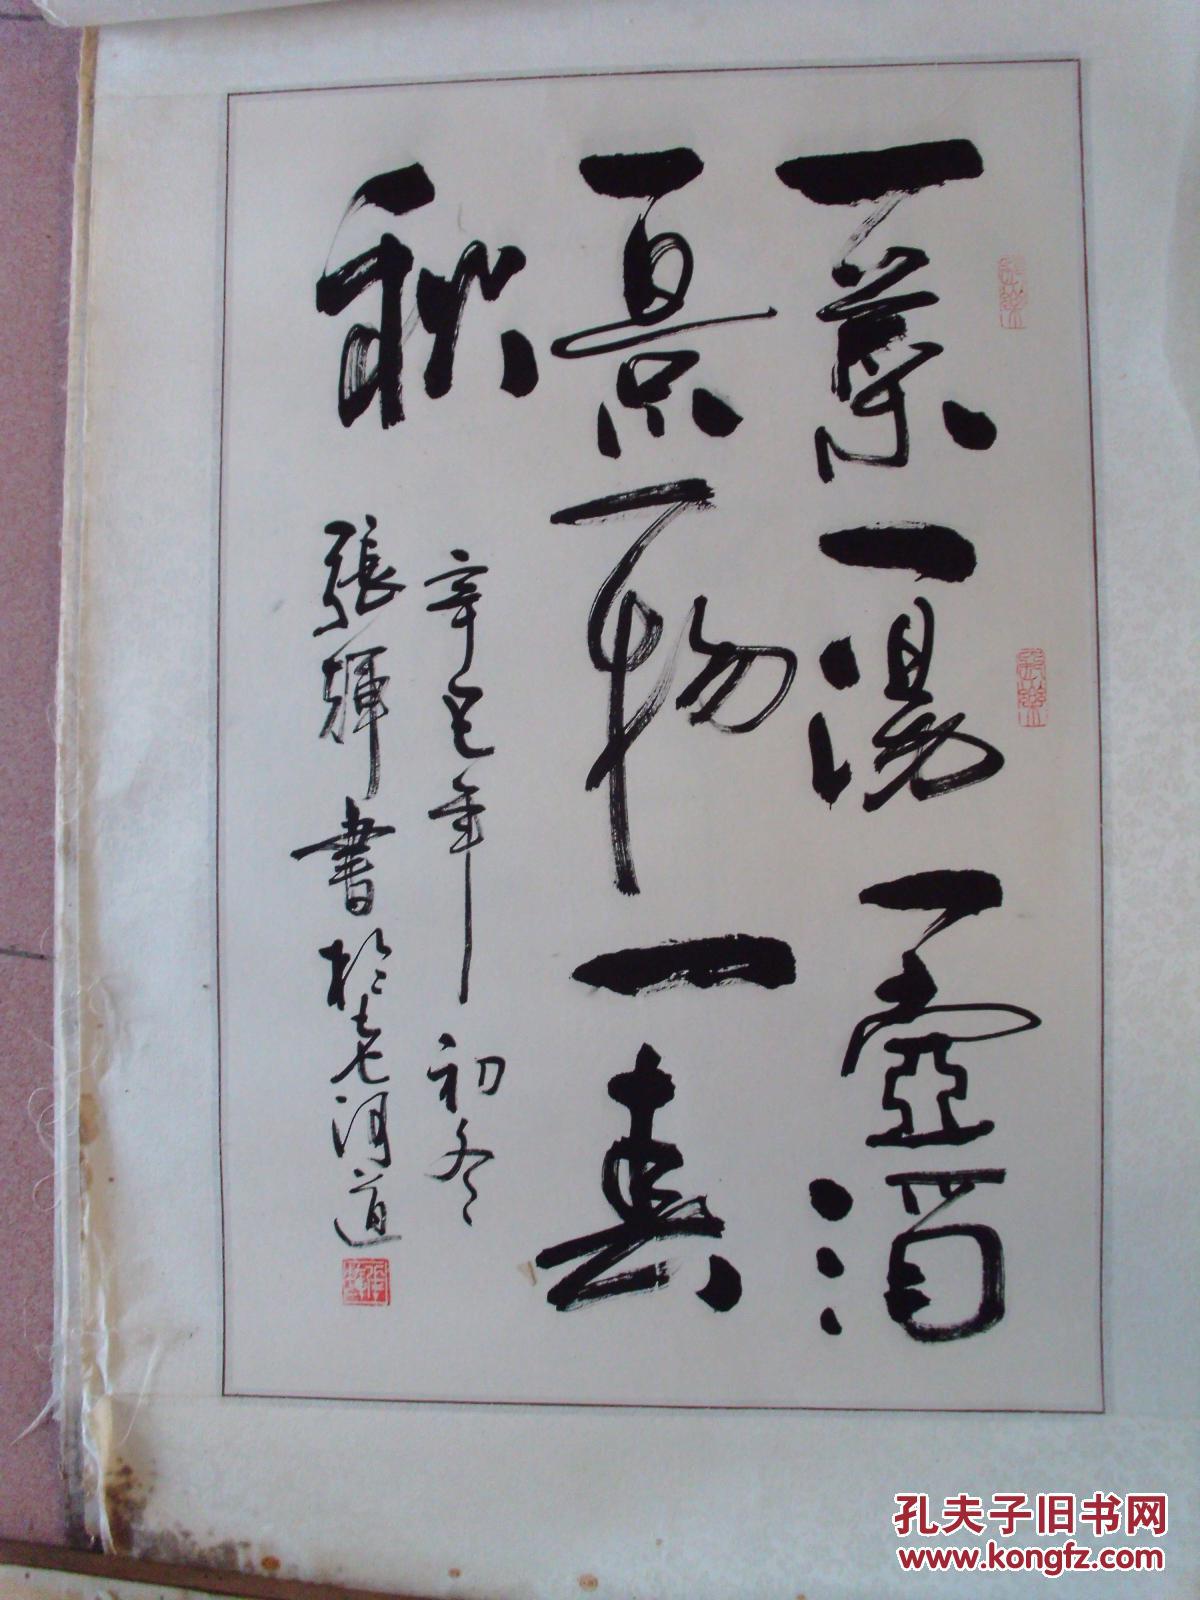 一菜一湯一壺酒
一景一物一春
秋
辛巳年初冬
張輝書於河道
孔夫子旧书网
www.kongfz.com